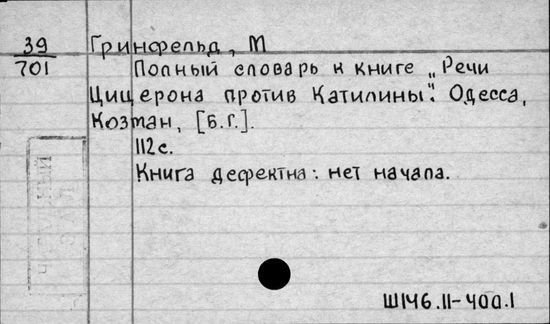 39
701
Гринфельд, М
Полный словарь к книге „Речи
Цицерона против Катилины". Одесса,
Козман, [б.г.].
112 с.
Книга дефектна: нет начала.
Ш146.11-400.1